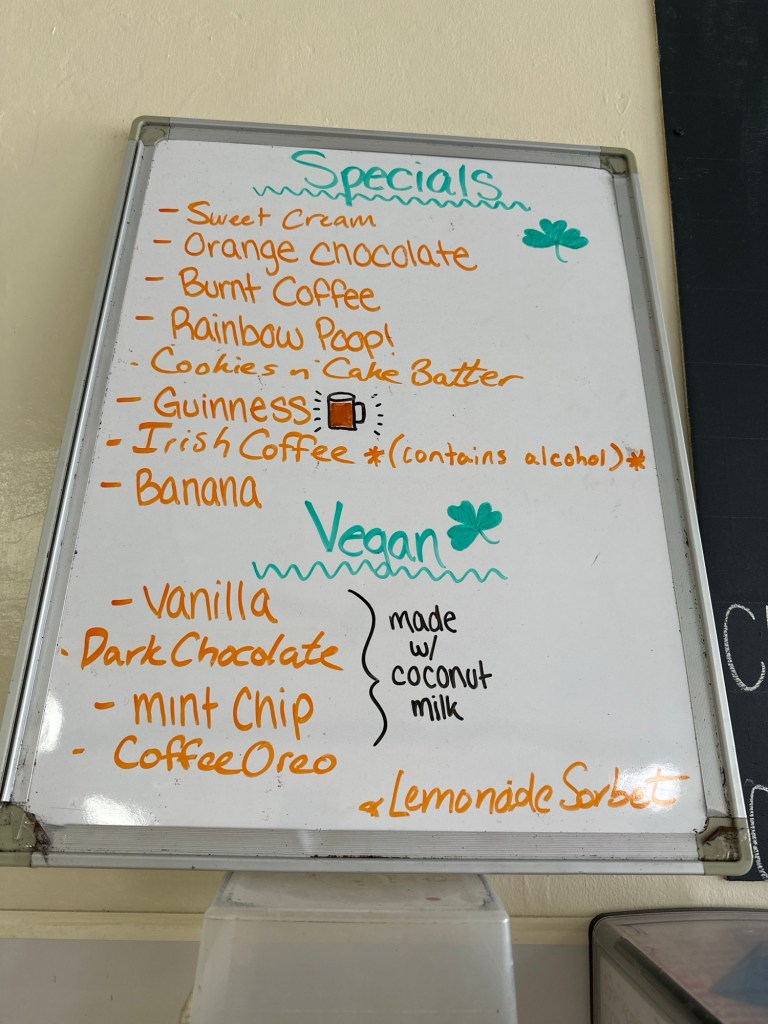 Specials
- Sweet Cream
- Orange chocolate
- Burnt Coffee
- Rainbow Poop!
- Cookies n' Cake Batter
- Guinness
- Irish Coffee *(contains alcohol)*
- Banana
Vegan
- Vanilla
- Dark Chocolate
- mint Chip
- Coffee Oreo
made
w/
coconut
milk
& Lemonade Sorbet